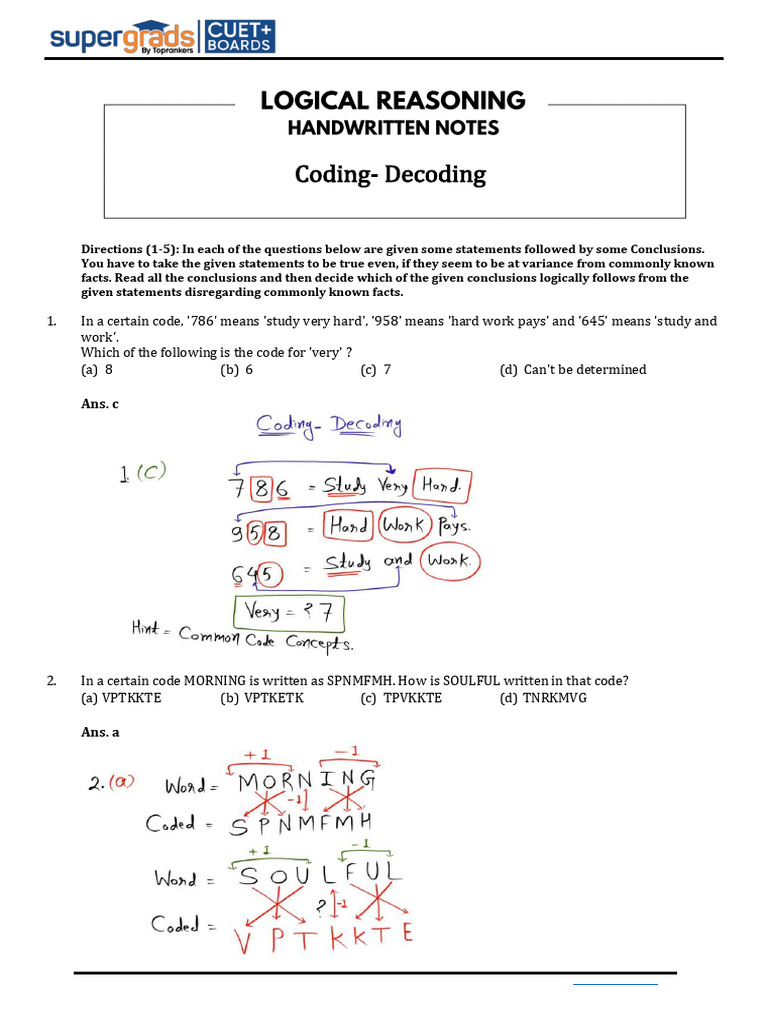 supergrads
By Toprankers
CUET+
BOARDS
LOGICAL REASONING
HANDWRITTEN NOTES
Coding- Decoding
Directions (1-5): In each of the questions below are given some statements followed by some Conclusions.
You have to take the given statements to be true even, if they seem to be at variance from commonly known
facts. Read all the conclusions and then decide which of the given conclusions logically follows from the
given statements disregarding commonly known facts.
1. In a certain code, '786' means 'study very hard', '958' means 'hard work pays' and '645' means 'study and
work'.
Which of the following is the code for 'very' ?
(a) 8 (b) 6 (c) 7 (d) Can't be determined
Ans. c
Coding- Decoding
1. (C)
786 = Study Very Hard.
958 = Hard Work Pays.
645 = Study and Work.
Very = ? 7
Hint = Common Code Concepts.
2. In a certain code MORNING is written as SPNMFMH. How is SOULFUL written in that code?
(a) VPTKKTE (b) VPTKETK (c) TPVKKTE (d) TNRKMVG
Ans. a
+1 -1
2. (a) Word = MORNING
-1
Coded = SPNMFMH
+1 -1
Word = SOULFUL
? -1
Coded = VPTKKTE